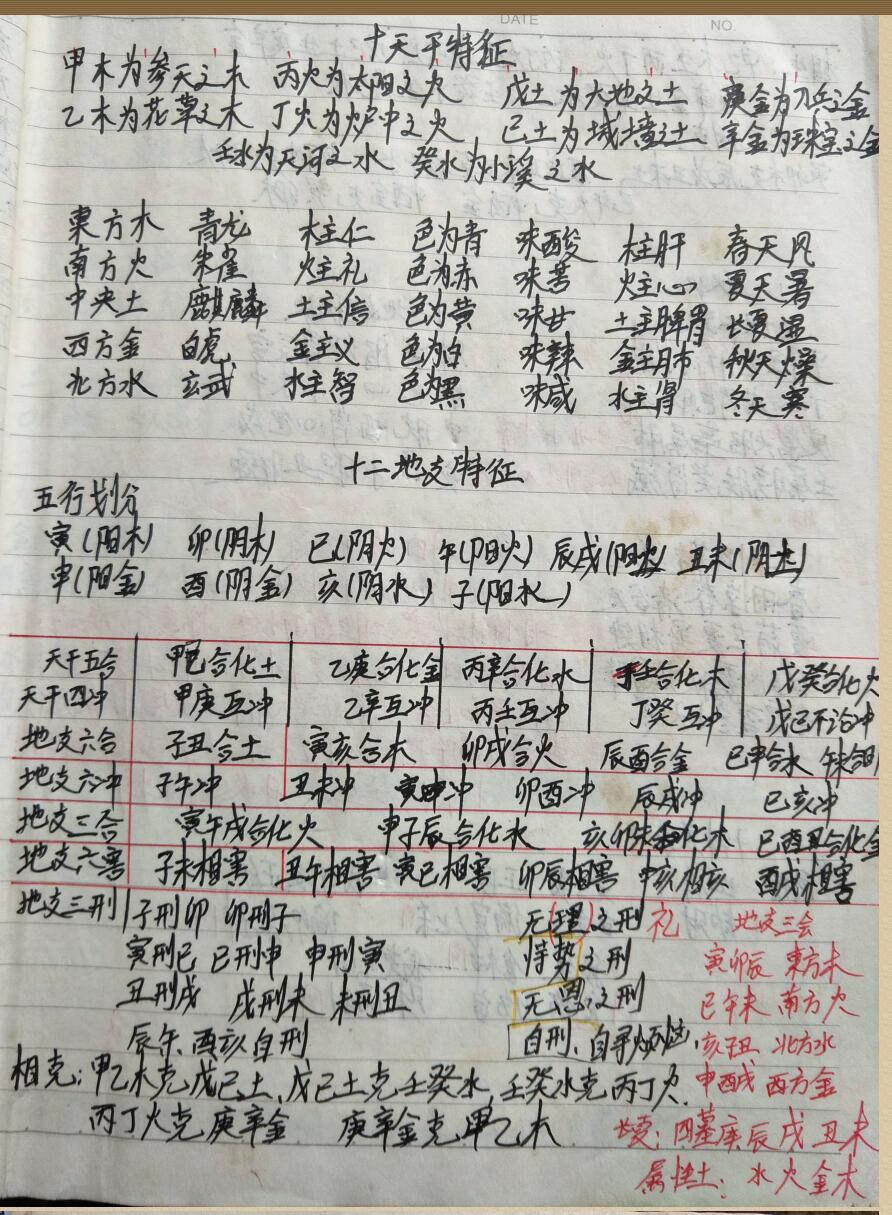 DATE NO.
十天干特征
甲木为参天之木 丙火为太阳之火 戊土为大地之土 庚金为刀兵之金
乙木为花草之木 丁火为炉中之火 己土为城墙之土 辛金为珠宝之金
壬水为天河之水 癸水为小溪之水
東方木 青龙 木主仁 色为青 味酸 木主肝 春天风
南方火 朱雀 火主礼 色为赤 味苦 火主心 夏天暑
中央土 麒麟 土主信 色为黄 味甘 土主脾胃 长夏湿
西方金 白虎 金主义 色为白 味辣 金主肺 秋天燥
北方水 玄武 水主智 色为黑 味咸 水主肾 冬天寒
十二地支特征
五行划分
寅(阳木) 卯(阴木) 巳(阴火) 午(阳火) 辰戌(阳土) 丑未(阴土)
申(阳金) 酉(阴金) 亥(阴水) 子(阳水)
天干五合 甲己合化土 乙庚合化金 丙辛合化水 丁壬合化木 戊癸合化火
天干四冲 甲庚互冲 乙辛互冲 丙壬互冲 丁癸互冲 戊己不论冲
地支六合 子丑合土 寅亥合木 卯戌合火 辰酉合金 巳申合水 午未合
地支六冲 子午冲 丑未冲 寅申冲 卯酉冲 辰戌冲 巳亥冲
地支三合 寅午戌合化火 申子辰合化水 亥卯未合化木 巳酉丑合化金
地支六害 子未相害 丑午相害 寅巳相害 卯辰相害 申亥相亥 酉戌相害
地支三刑 子刑卯 卯刑子 无理之刑 礼 地支三会
寅刑巳 巳刑申 申刑寅 恃势之刑 寅卯辰 東方木
丑刑戌 戌刑未 未刑丑 无恩之刑 巳午未 南方火
辰午、酉亥自刑 自刑、自寻烦恼 亥子丑 北方水
相克:甲乙木克戊己土、戊己土克壬癸水、壬癸水克丙丁火、 申酉戌 西方金
丙丁火克庚辛金 庚辛金克甲乙木 长夏:四墓库辰戌丑未
属性土: 水火金木